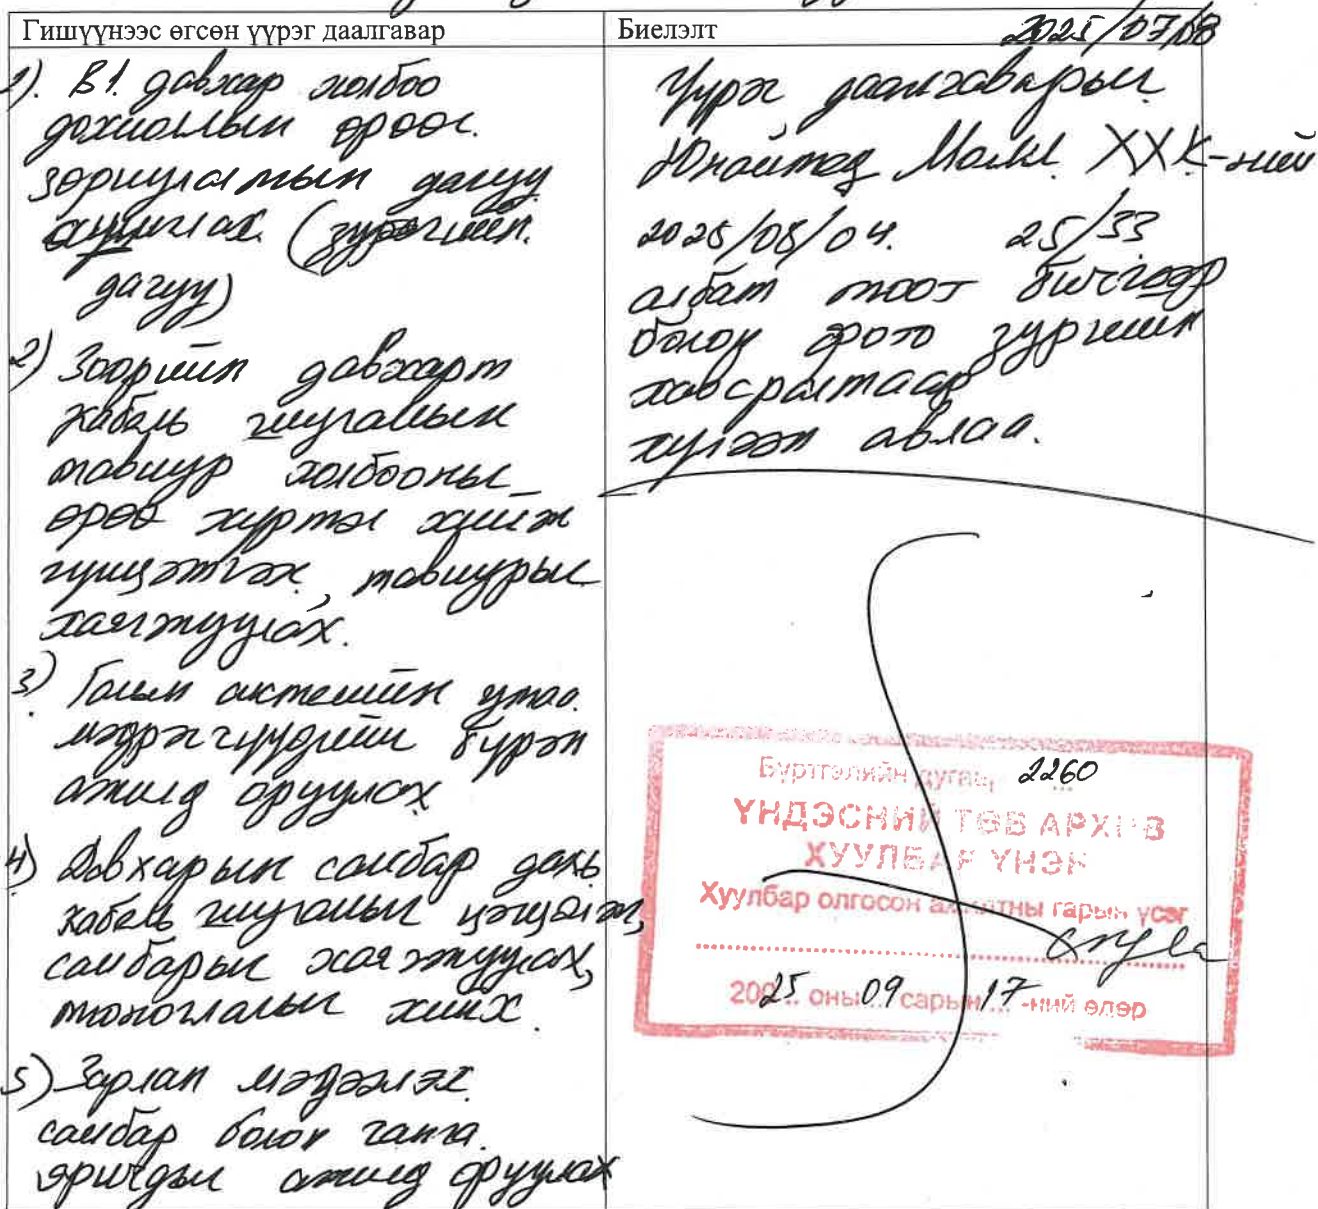 Гишүүнээс өгсөн үүрэг даалгавар
1). В1. давхар холбоо
дохиоллын өрөөг.
зориулалтын дагуу
(зургийн.
дагуу)
2) Зоорийн давхарт
кабель шугамын
тавиур холбооны
өрөө хүртэл хийж
гүйцэтгэх, тавиурыг
хаягжуулах.
3) Голын утаа
мэдрэгчүүдийг бүрэн
ажилд оруулах
4) Давхарын самбар дахь
кабель шугамыг цэгцэлж,
самбарыг хаягжуулах,
тоноглолыг хийх.
5) Зарлан мэдээлэх
самбар болон ганга
яригчдыг ажилд оруулах
Биелэлт 2025/07/08
Үүрэг даалгаварыг
Юнайтед Молл ХХК-ний
2025/08/04. 25/33
албан тоот бичгээр
болон фото зургийн
хавсралтаар
хүлээн авлаа.
Бүртгэлийн дугаар 2260
ҮНДЭСНИЙ ТӨВ АРХИВ
ХУУЛБАР ҮНЭН
Хуулбар олгосон ажилтны гарын үсэг
200 25 оны 09 сарын 17 -ний өдөр